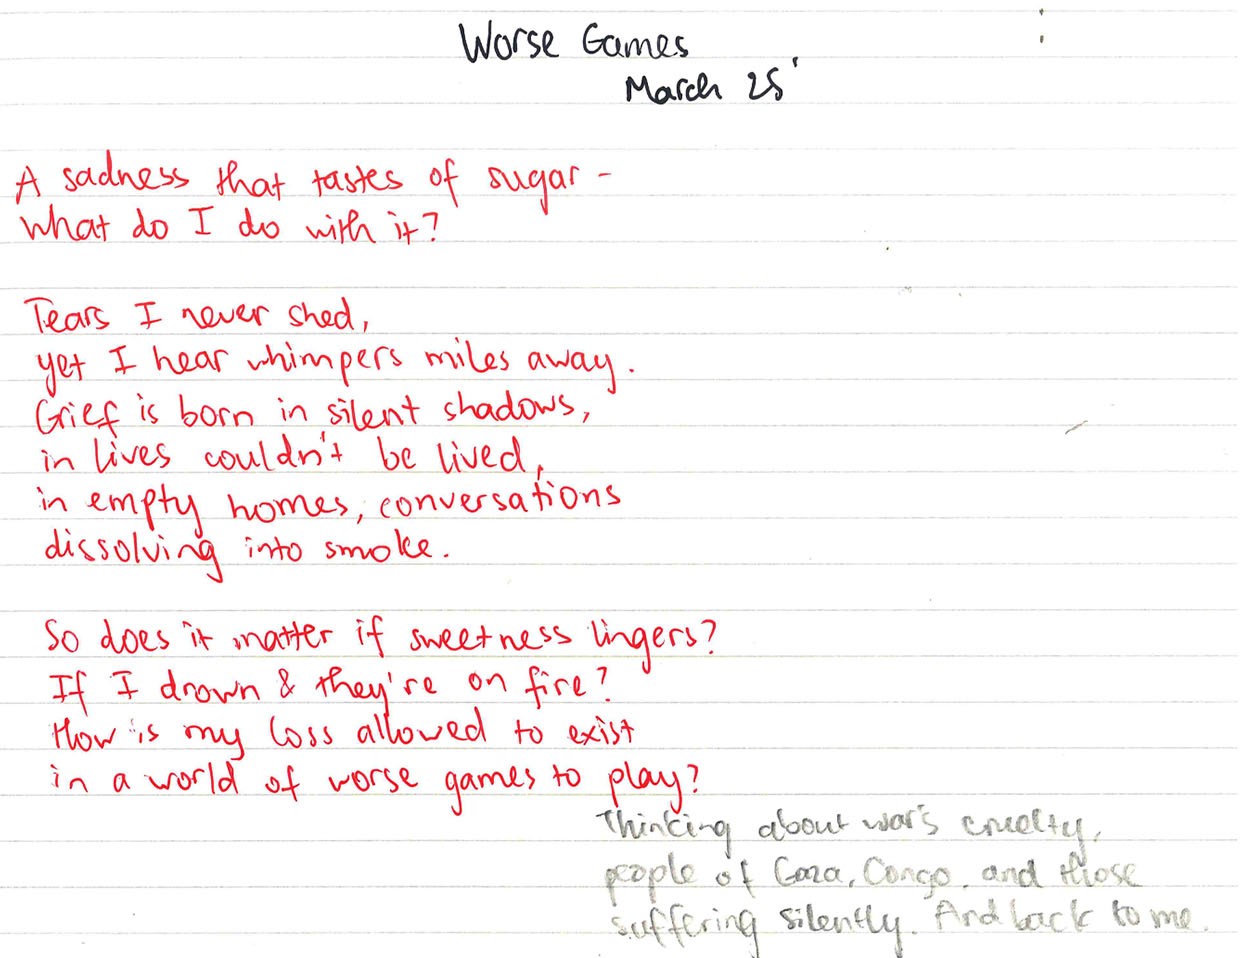 Worse Games
March 25'
A sadness that tastes of sugar -
what do I do with it?
Tears I never shed,
yet I hear whimpers miles away.
Grief is born in silent shadows,
in lives couldn't be lived,
in empty homes, conversations
dissolving into smoke.
So does it matter if sweetness lingers?
If I drown & they're on fire?
How is my loss allowed to exist
in a world of worse games to play?
Thinking about war's cruelty,
people of Gaza, Congo, and those
suffering silently. And back to me.